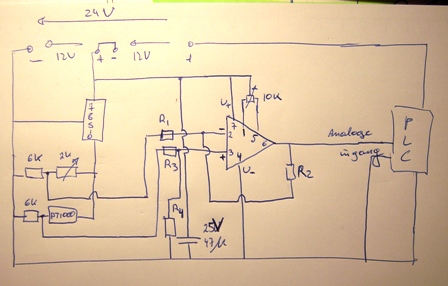 24V
- 12V + - 12V +
7
8
5
0
R1
R3
U+
7 1
10K
- 2
5
6
+ 3
4
U-
6K
2K
6K
PT1000
R4
25V
47µ
R2
Analoge
ingang
P
L
C